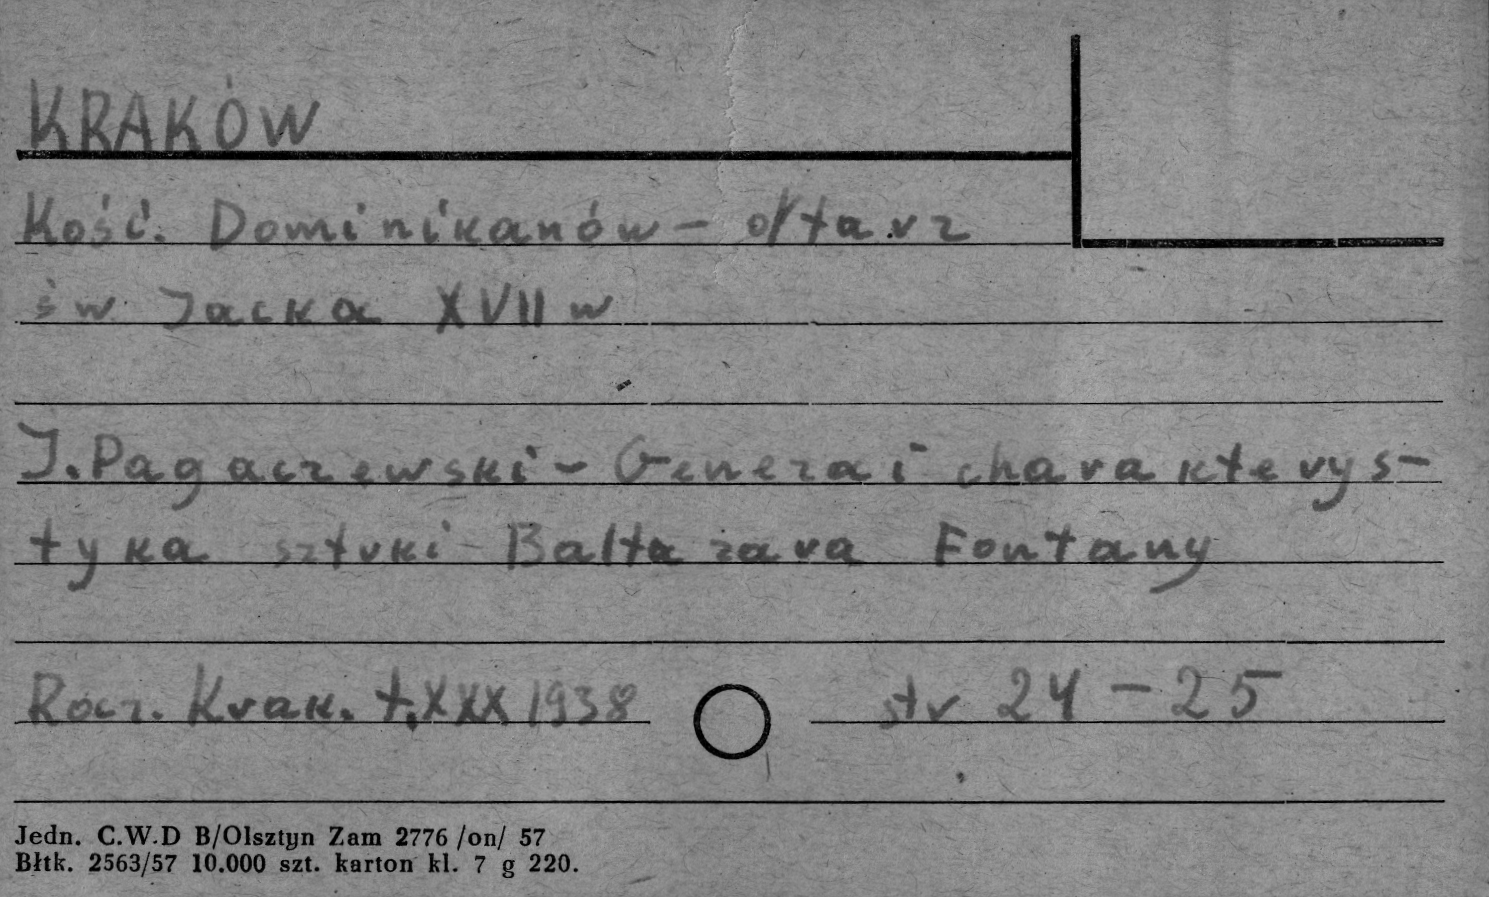 KRAKÓW
Kość. Dominikanów - ołtarz
św. Jacka XVII w
J. Pagaczewski - Geneza i charakterys-
tyka sztuki Baltazara Fontany
Rocz. Krak. t. XXX 1938 str 24-25
Jedn. C.W.D B/Olsztyn Zam 2776 /on/ 57
Błtk. 2563/57 10.000 szt. karton kl. 7 g 220.